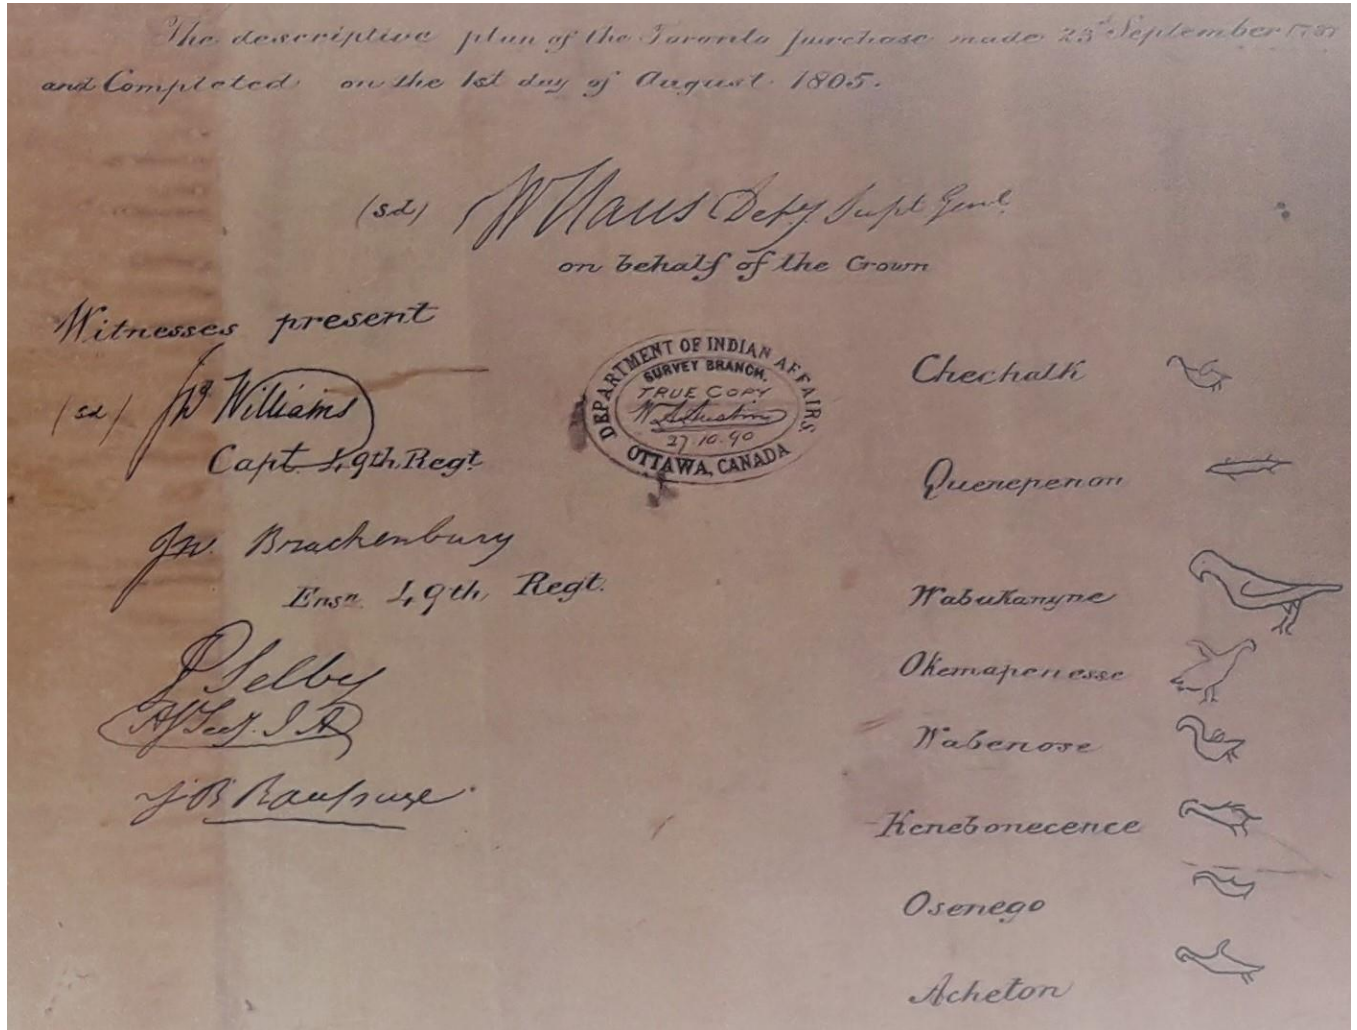 The descriptive plan of the Toronto purchase made 23rd September 1787
and Completed on the 1st day of August 1805.
(sd) W Claus Depy. Supt Genl.
on behalf of the Crown
Witnesses present
(sd) Williams
Capt. 49th Regt.
Jno. Brackenbury
Ensn. 49th Regt.
P Selby
J B Rousseau
DEPARTMENT OF INDIAN AFFAIRS,
SURVEY BRANCH.
TRUE COPY
W A Austin
27.10.90
OTTAWA, CANADA
Chechalk
Quenepenon
Wabukanyne
Okemapenesse
Wabenose
Kenebonecence
Osenego
Acheton